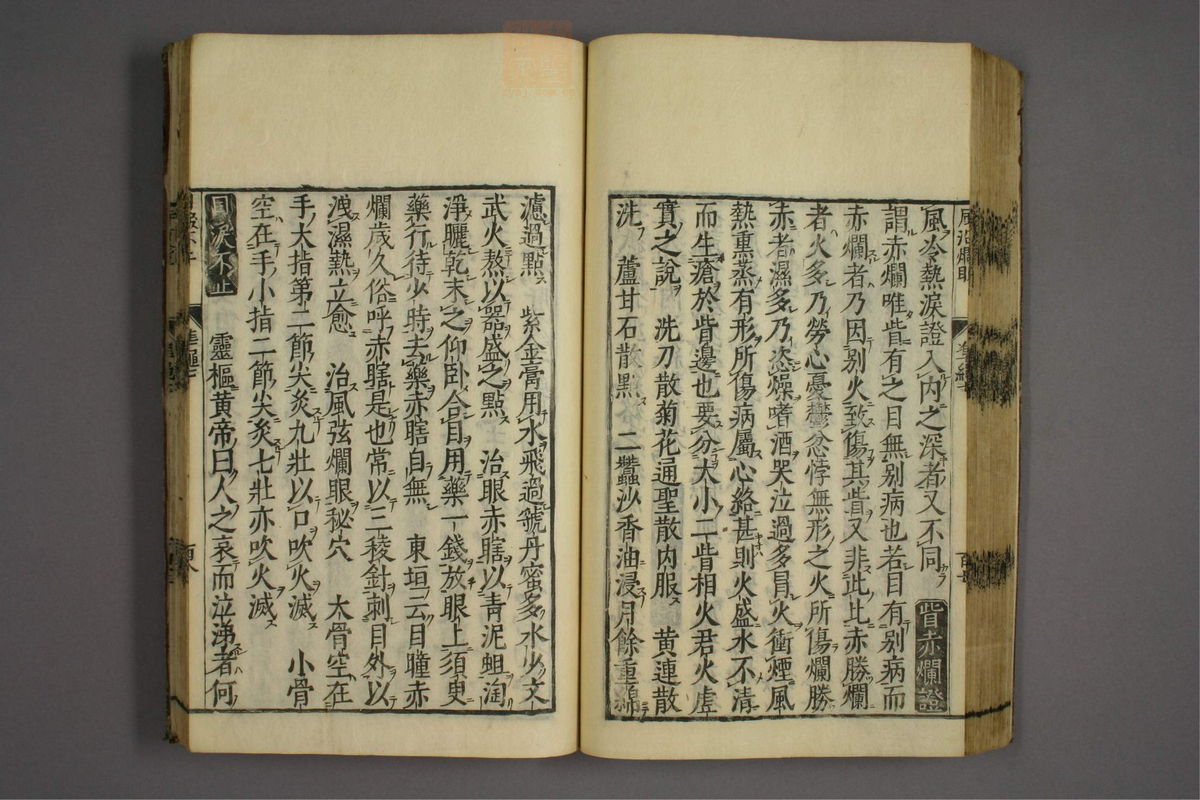 風冷熱淚證入内之深者又不同 眥赤爛證
謂赤爛唯眥有之目無别病也若目有别病而
赤爛者乃因别火致傷其眥又非此比赤勝爛
者火多乃勞心憂鬱忿悖無形之火所傷爛勝
赤者濕多乃恣燥嗜酒哭泣過多冒火衝煙風
熱熏蒸有形所傷病屬心絡甚則火盛水不清
而生瘡於眥邊也要分大小二眥相火君火虚
實之說 洗刀散菊花通聖散内服 黄連散
洗 蘆甘石散點 二蠶沙香油浸月餘重綿
濾過點 紫金膏用水飛過虢丹蜜多水少文
武火熬以器盛之點 治眼赤瞎以青泥蛆淘
淨曬乾末之仰卧合目用藥一錢放眼上須臾
藥行待少時去藥赤瞎自無 東垣云目瞳赤
爛歲久俗呼赤瞎是也常以三稜針刺目外以
洩濕熱立愈 治風弦爛眼秘穴 大骨空在
手大指第二節尖灸九壯以口吹火滅 小骨
空在手小指二節尖灸七壯亦吹火滅
目淚不止 靈樞黄帝曰人之哀而泣涕者何